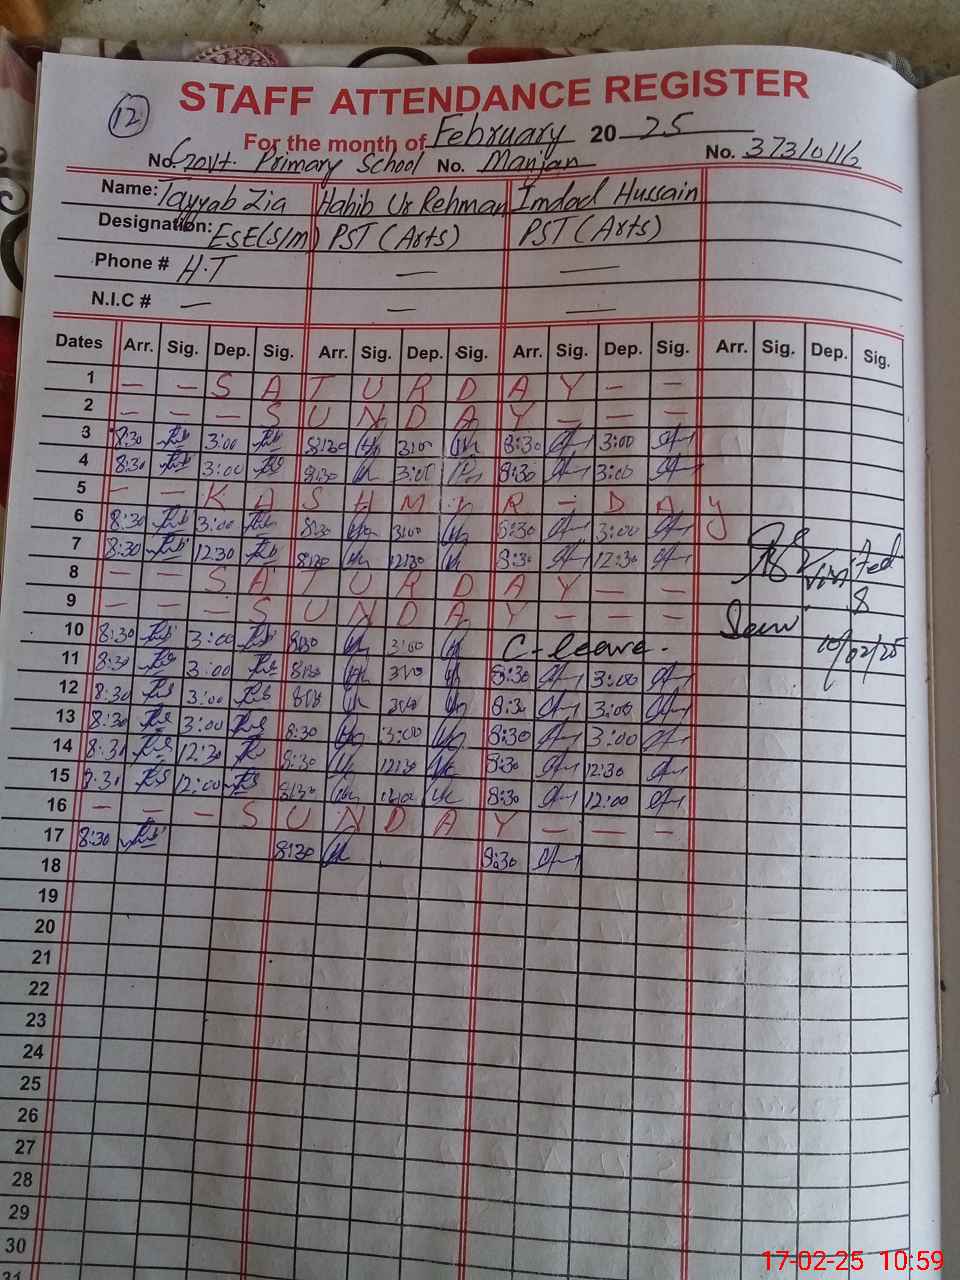 12
STAFF ATTENDANCE REGISTER
For the month of February 20 25
No. Govt. Primary School No. Manjan No. 37310112
Name: Tayyab Zia Habib Ur Rehman Imdad Hussain
Designation: ESE(S/m) PST (Arts) PST (Arts)
Phone # H.T — —
N.I.C # — — —
Dates Arr. Sig. Dep. Sig. Arr. Sig. Dep. Sig. Arr. Sig. Dep. Sig. Arr. Sig. Dep. Sig.
1 — — S A T U R D A Y — —
2 — — — S U N D A Y — — —
3 8:30 3:00 8:30 3:00 8:30 3:00
4 8:30 3:00 8:30 3:00 8:30 3:00
5 — — K A S H M I R — D A y
6 8:30 3:00 8:30 3:00 8:30 3:00
7 8:30 12:30 8:30 12:30 8:30 12:30
Visited
8 — — S A T U R D A Y — —
&
9 — — — S U N D A Y — — —
Seen
10 8:30 3:00 8:30 3:00 C-leave.
10/02/25
11 8:30 3:00 8:30 3:00 8:30 3:00
12 8:30 3:00 8:30 3:00 8:30 3:00
13 8:30 3:00 8:30 3:00 8:30 3:00
14 8:30 12:30 8:30 12:30 8:30 12:30
15 8:30 12:00 8:30 12:00 8:30 12:00
16 — — — S U N D A Y — — —
17 8:30 8:30 8:30
18
19
20
21
22
23
24
25
26
27
28
29
30
31
17-02-25 10:59